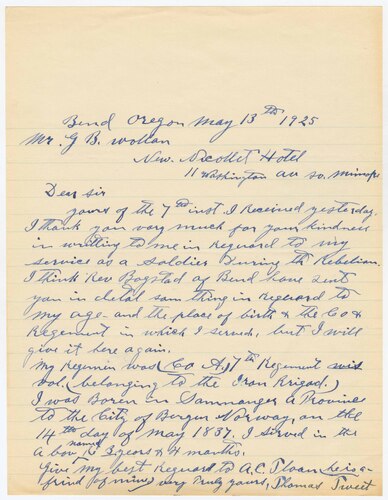 Bend Oregon May 13th 1925
Mr. G B. Wollan
New. Nicollet Hotel
11 Washington av so. minnape
Dear sir
yours of the 7th inst. I Received yesterday.
I thank you vary much for your kindness
in writting to me in Reguard to my
service as a soldier During th Rebelian.
I think Rev Bogstad of Bend have sent
you in detal som thing in reguard to
my age - and the place of birth & the Co &
Regement in which I served, but I will
give it here again.
My Regemen was (Co A,) 7th Regement
vol. (belonging to the Iron Brigad.)
I was Boren in Samnanger a Province
to the City of Bergen Norway, on the
14th day of May 1837. I served in the
a bov named R 3 years & 4 months.
Give my best Reguard to A.C. Floan he is a
frind of mine) very Truly yours, Thomas Tweet